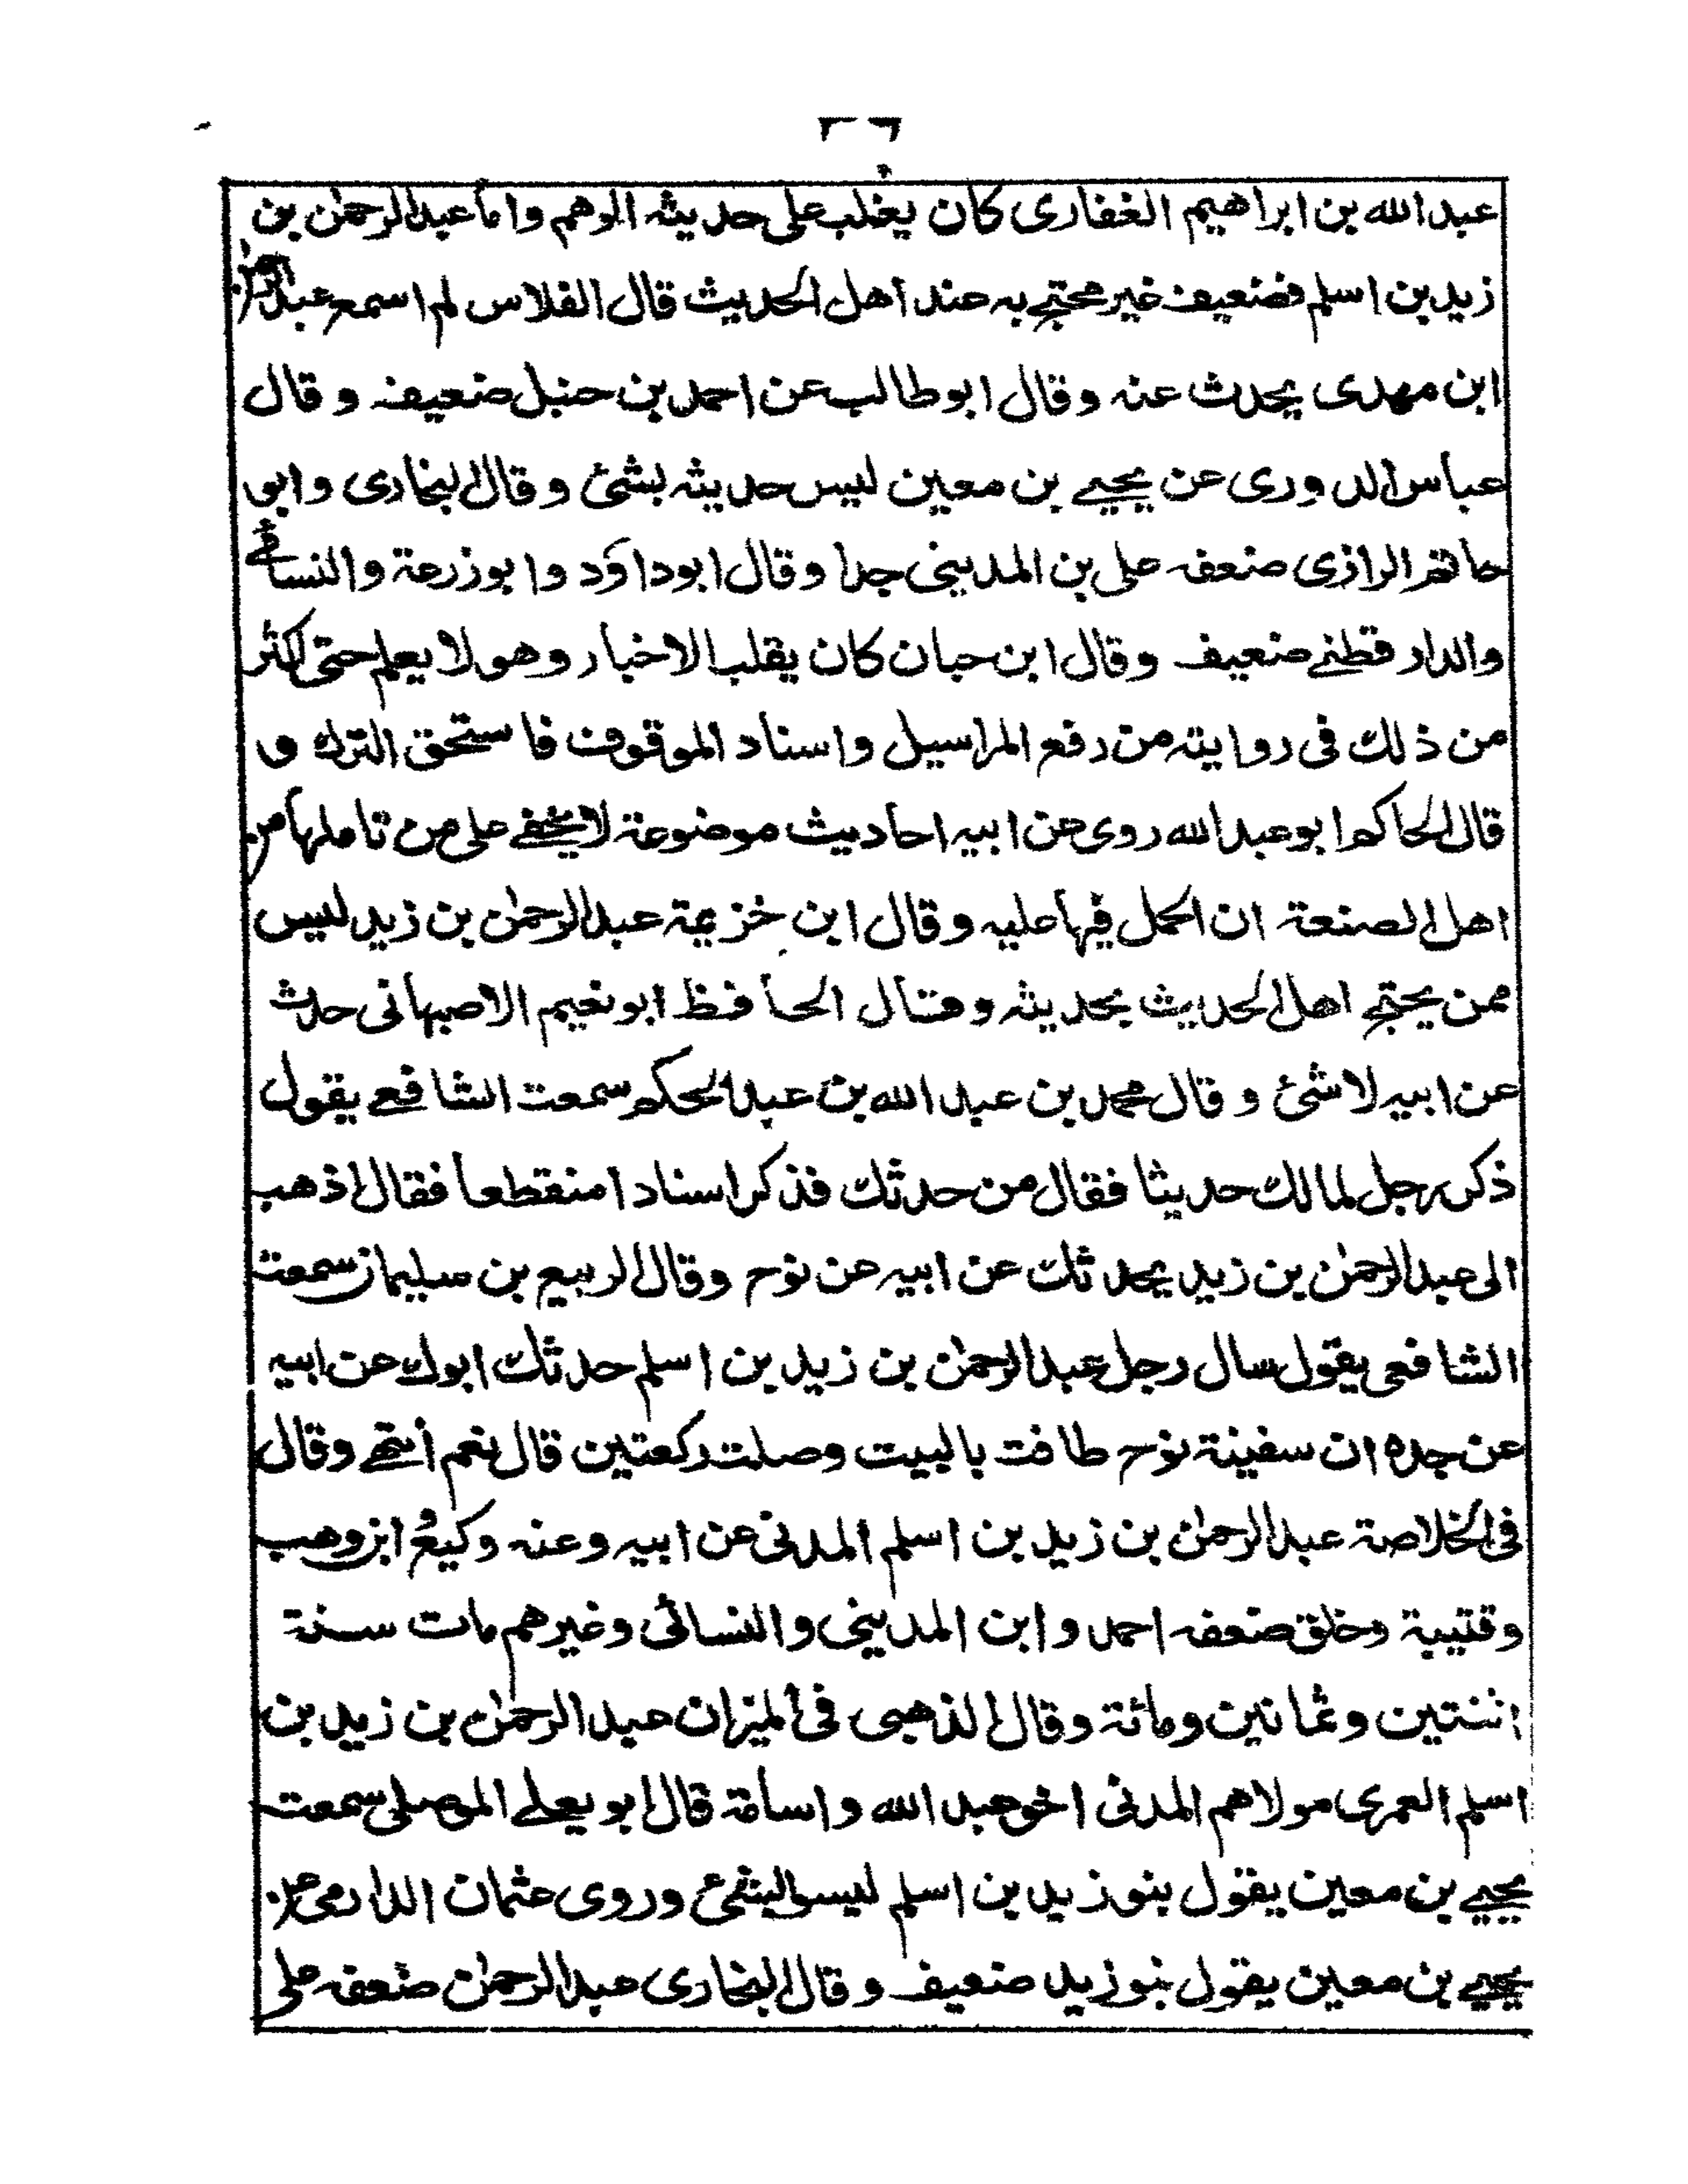 عبد الله بن ابراهيم الغفارى كان يغلب على حديثه الوهم واما عبد الرحمٰن بن
زيد بن اسلم فضعيف غير محتج به عند اهل الحديث قال الفلاس لم اسمع عبد الرحمٰن
ابن مهدى يحدث عنه وقال ابو طالب عن احمد بن حنبل ضعيف وقال
عباس الدورى عن يحيے بن معين ليس حديثه بشئ وقال البخارى وابو
حاتم الرازى ضعفه على بن المدينى جدا وقال ابو داؤد وابو زرعة والنسائے
والدارقطنے ضعيف وقال ابن حبان كان يقلب الاخبار وهو لا يعلم حتى كثر
من ذلك فى روايته من رفع المراسيل واسناد الموقوف فاستحق الترك و
قال الحاكم ابو عبد الله روى عن ابيه احاديث موضوعة لا يخفے على من تاملها من
اهل الصنعة ان الحمل فيها عليه وقال ابن خزيمة عبد الرحمٰن بن زيد ليس
ممن يحتج اهل الحديث بحديثه وقال الحافظ ابو نعيم الاصبهانى حدث
عن ابيه لا شئ وقال محمد بن عبد الله بن عبد الحكم سمعت الشافعے يقول
ذكر رجل لمالك حديثا فقال من حدثك فذكر اسنادا منقطعا فقال اذهب
الى عبد الرحمٰن بن زيد يحدثك عن ابيه عن نوح وقال الربيع بن سليمان سمعت
الشافعى يقول سال رجل عبد الرحمٰن بن زيد بن اسلم حدثك ابوك عن ابيه
عن جده ان سفينة نوح طافت بالبيت وصلت ركعتين قال نعم انتهے وقال
فى الخلاصة عبد الرحمٰن بن زيد بن اسلم المدنى عن ابيه وعنه وكيع وابن وهب
وقتيبة وخلق ضعفه احمد وابن المدينى والنسائى وغيرهم مات سنة
اثنتين وثمانين ومائة وقال الذهبى فى الميزان عبد الرحمٰن بن زيد بن
اسلم العمرى مولاهم المدنى اخو عبد الله واسامة قال ابو يعلے الموصلى سمعت
يحيے بن معين يقول بنو زيد بن اسلم ليسوا بشئ وروى عثمان الدارمى عن
يحيے بن معين يقول بنو زيد ضعيف وقال البخارى عبد الرحمٰن ضعفه على